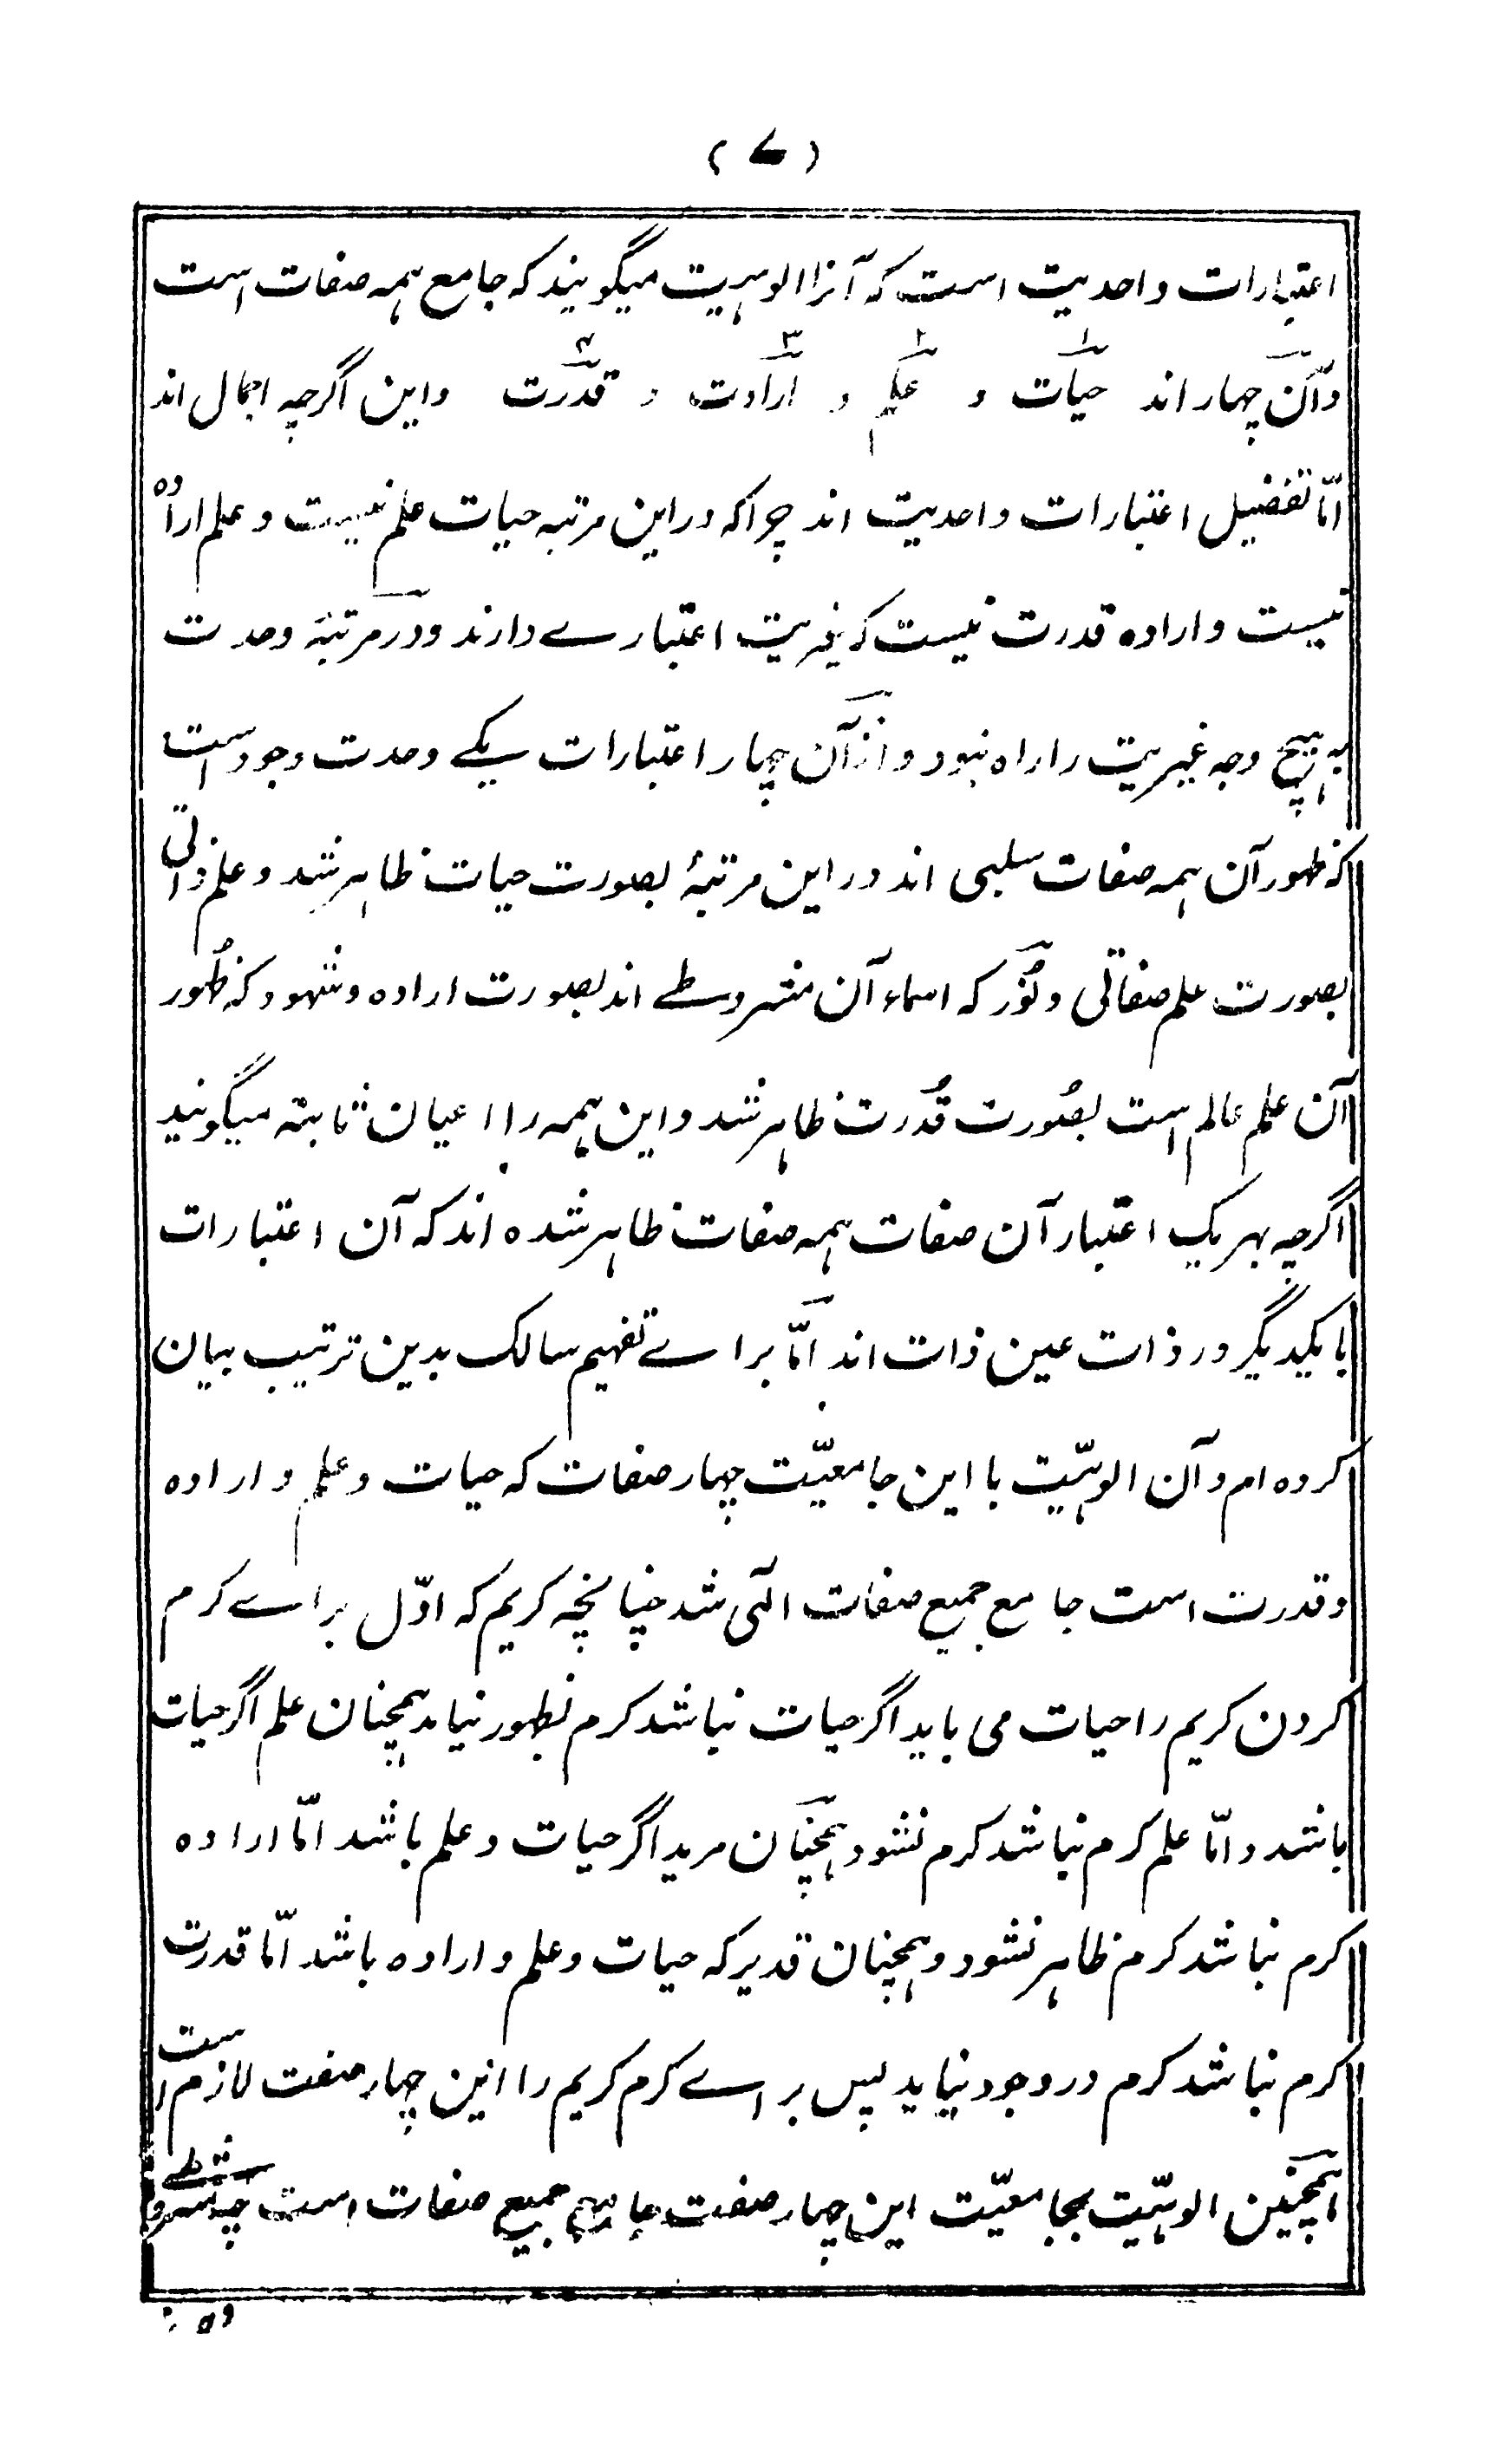 (۷)
اعتبارات واحدیت است که آنرا الوہیت میگویند که جامع ہمہ صفات است
وآن چہار اند حیات۱ و علم۲ و ارادت۳ و قدرت۴ واین اگرچہ اجمال اند
امّا تفضیل اعتبارات واحدیت اند چراکہ دراین مرتبہ حیات علم نیست و علم ارادہ
نیست وارادہ قدرت نیست کہ غیریت اعتبارے دارند ودر مرتبۂ وحدت
بہ ہیچ وجہ غیریت را راہ نبود و ازآن چہار اعتبارات یکے وحدت وجود است
کہ ظہور آن ہمہ صفات سلبی اند دراین مرتبۂ بصورت حیات ظاہر شد و علم ذاتی
بصورت علم صفاتی ونُور کہ اسماء آن مشروطے اند بصورت ارادہ وشہود کہ ظُہور
آن علم عالم است بصُورت قُدرت ظاہر شد واین ہمہ را اعیان ثابتہ میگویند
اگرچہ بہر یک اعتبار آن صفات ہمہ صفات ظاہر شدہ اند کہ آن اعتبارات
بایکدیگر در ذات عین ذات اند امّا براے تفہیم سالک بدین ترتیب بیان
کردہ ام وآن الوہیّت بااین جامعیّت چہار صفات کہ حیات وعلم وارادہ
وقدرت است جامع جمیع صفات الٓہی شد چنانچہ کریم کہ اوّل براے کرم
کردن کریم را حیات می باید اگر حیات نباشد کرم بظہور نیاید ہمچنان علم اگر حیات
باشد وامّا علم کرم نباشد کرم نشود ہمچنان مرید اگر حیات وعلم باشد امّا ارادہ
کرم نباشد کرم ظاہر نشود وہمچنان قدیر کہ حیات وعلم وارادہ باشد امّا قدرت
کرم نباشد کرم در وجود نیاید پس براے کرم کریم را ازین چہار صفت لازم است
ہمچنین الوہیّت بجامعیّت این چہار صفت جامع جمیع صفات است چہ مشروطے